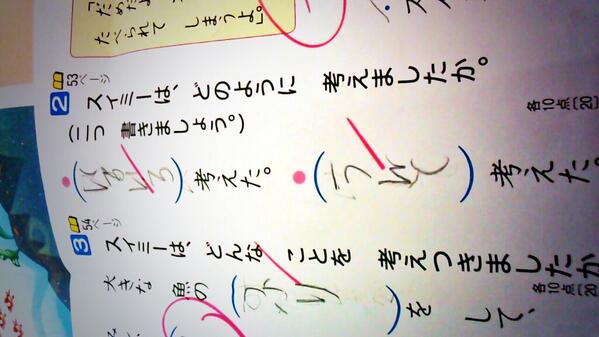 たべられて しまうよ」。
53ページ
2 スイミーは、どのように 考えましたか。
(二つ 書きましょう。)
各10点(20)
(いろいろ)考えた。
(うんと)考えた。
54ページ
3 スイミーは、どんな ことを 考えつきましたか
各10点(20)
大きな 魚の(ふり)を して、